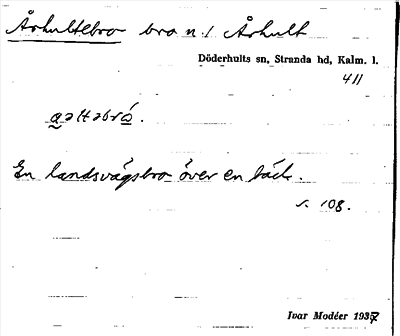 Århultebro bro n. l Århult
Döderhults sn, Stranda hd, Kalm. l.
411
En landsvägsbro över en bäck.
s. 108.
Ivar Modéer 1937